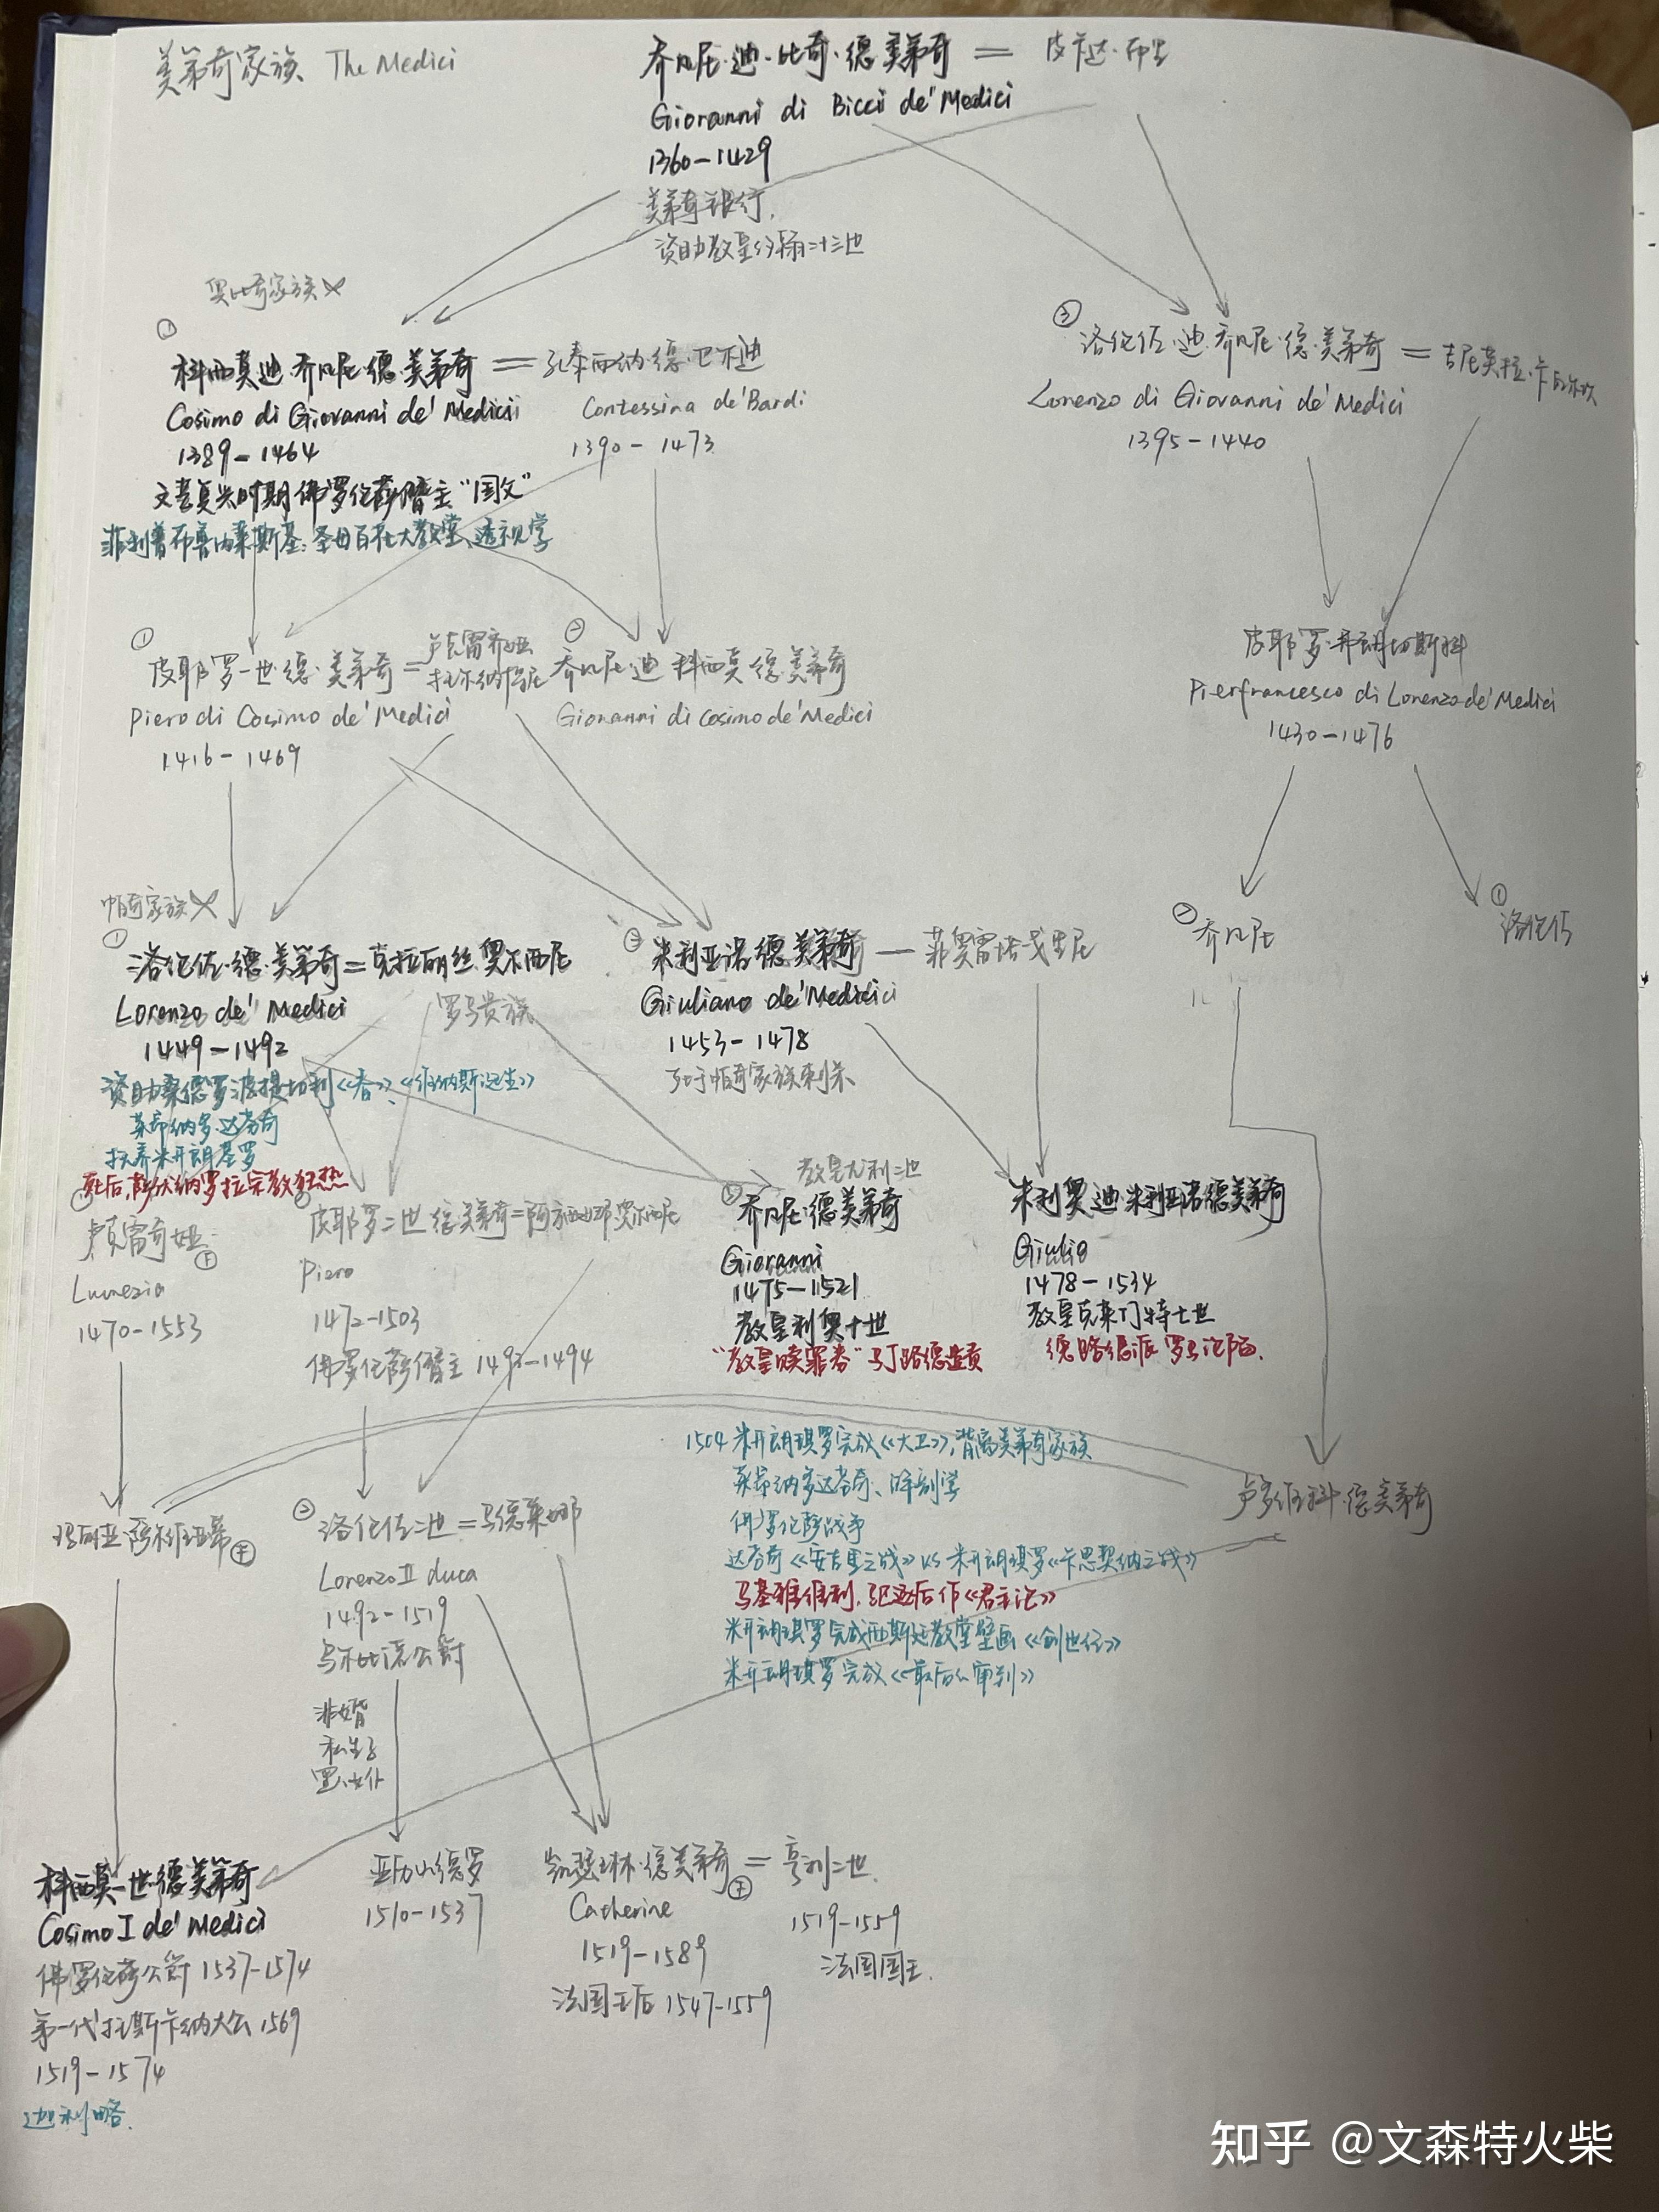 美第奇家族 The Medici
乔凡尼·迪·比奇·德·美第奇 =
Giovanni di Bicci de' Medici
1360-1429
美第奇银行,
资助教皇约翰二十三世
奥比奇家族×
①
科西莫迪·乔凡尼·德·美第奇 = 孔泰西纳·德·巴尔迪
Cosimo di Giovanni de' Medicii
Contessina de' Bardi
1389-1464
1390-1473
文艺复兴时期佛罗伦萨僭主“国父”
菲利普布鲁内莱斯基:圣母百花大教堂、透视学
③
洛伦佐·迪·乔凡尼·德·美第奇 =
Lorenzo di Giovanni de' Medici
1395-1440
①
皮耶罗一世·德·美第奇 = 卢克雷齐娅
Piero di Cosimo de' Medici
1416-1469
②
乔凡尼·迪科西莫·德·美第奇
Giovanni di cosimo de' Medici
皮耶罗·弗朗切斯科
Pierfrancesco di Lorenzo de' Medici
1430-1476
帕奇家族×
①
洛伦佐·德·美第奇=克拉丽丝·奥尔西尼
Lorenzo de' Medici
罗马贵族
1449-1492
资助桑德罗波提切利《春》、《维纳斯诞生》
莱昂纳多·达芬奇
抚养米开朗基罗
死后,萨伏纳罗拉宗教狂热
③
米利亚诺德美第奇 — 菲奥雷塔戈里尼
Giuliano de' Medici
1453-1478
死于帕奇家族刺杀、
②
乔凡尼
①
洛伦佐
①
卢克雷奇娅
Lucrezia
1470-1553
②
皮耶罗二世德美第奇=阿方西娜奥尔西尼
Piero
1472-1503
佛罗伦萨僭主 1492-1494
教皇尤利二世
乔凡尼·德美第奇
Giovanni
1475-1521
教皇利奥十世
“教皇赎罪券”马丁路德谴责
米利奥迪·米利亚诺德美第奇
Giulio
1478-1534
教皇克莱门特七世
罗马沦陷.
1504 米开朗琪罗完成《大卫》,背离美第奇家族
莱昂纳多达芬奇、解剖学
佛罗伦萨战争
达芬奇《安吉里之战》VS 米开朗琪罗《卡思契纳之战》
马基雅维利,驱逐后作《君主论》
米开朗琪罗完成西斯廷教堂壁画《创世纪》
米开朗琪罗完成《最后的审判》
卢多维科·德美第奇
②
洛伦佐二世=马德莱娜
Lorenzo II duca
1492-1519
乌尔比诺公爵
非婚
私生子
黑女仆
科西莫一世·德美第奇
Cosimo I de' Medici
佛罗伦萨公爵 1537-1574
第一代托斯卡纳大公 1569
1519-1574
迦利略.
亚历山德罗
1510-1537
凯瑟琳·德美第奇 = 亨利二世.
Catherine
1519-1559
1519-1589
法国国王.
法国王后 1547-1559
知乎 @文森特火柴